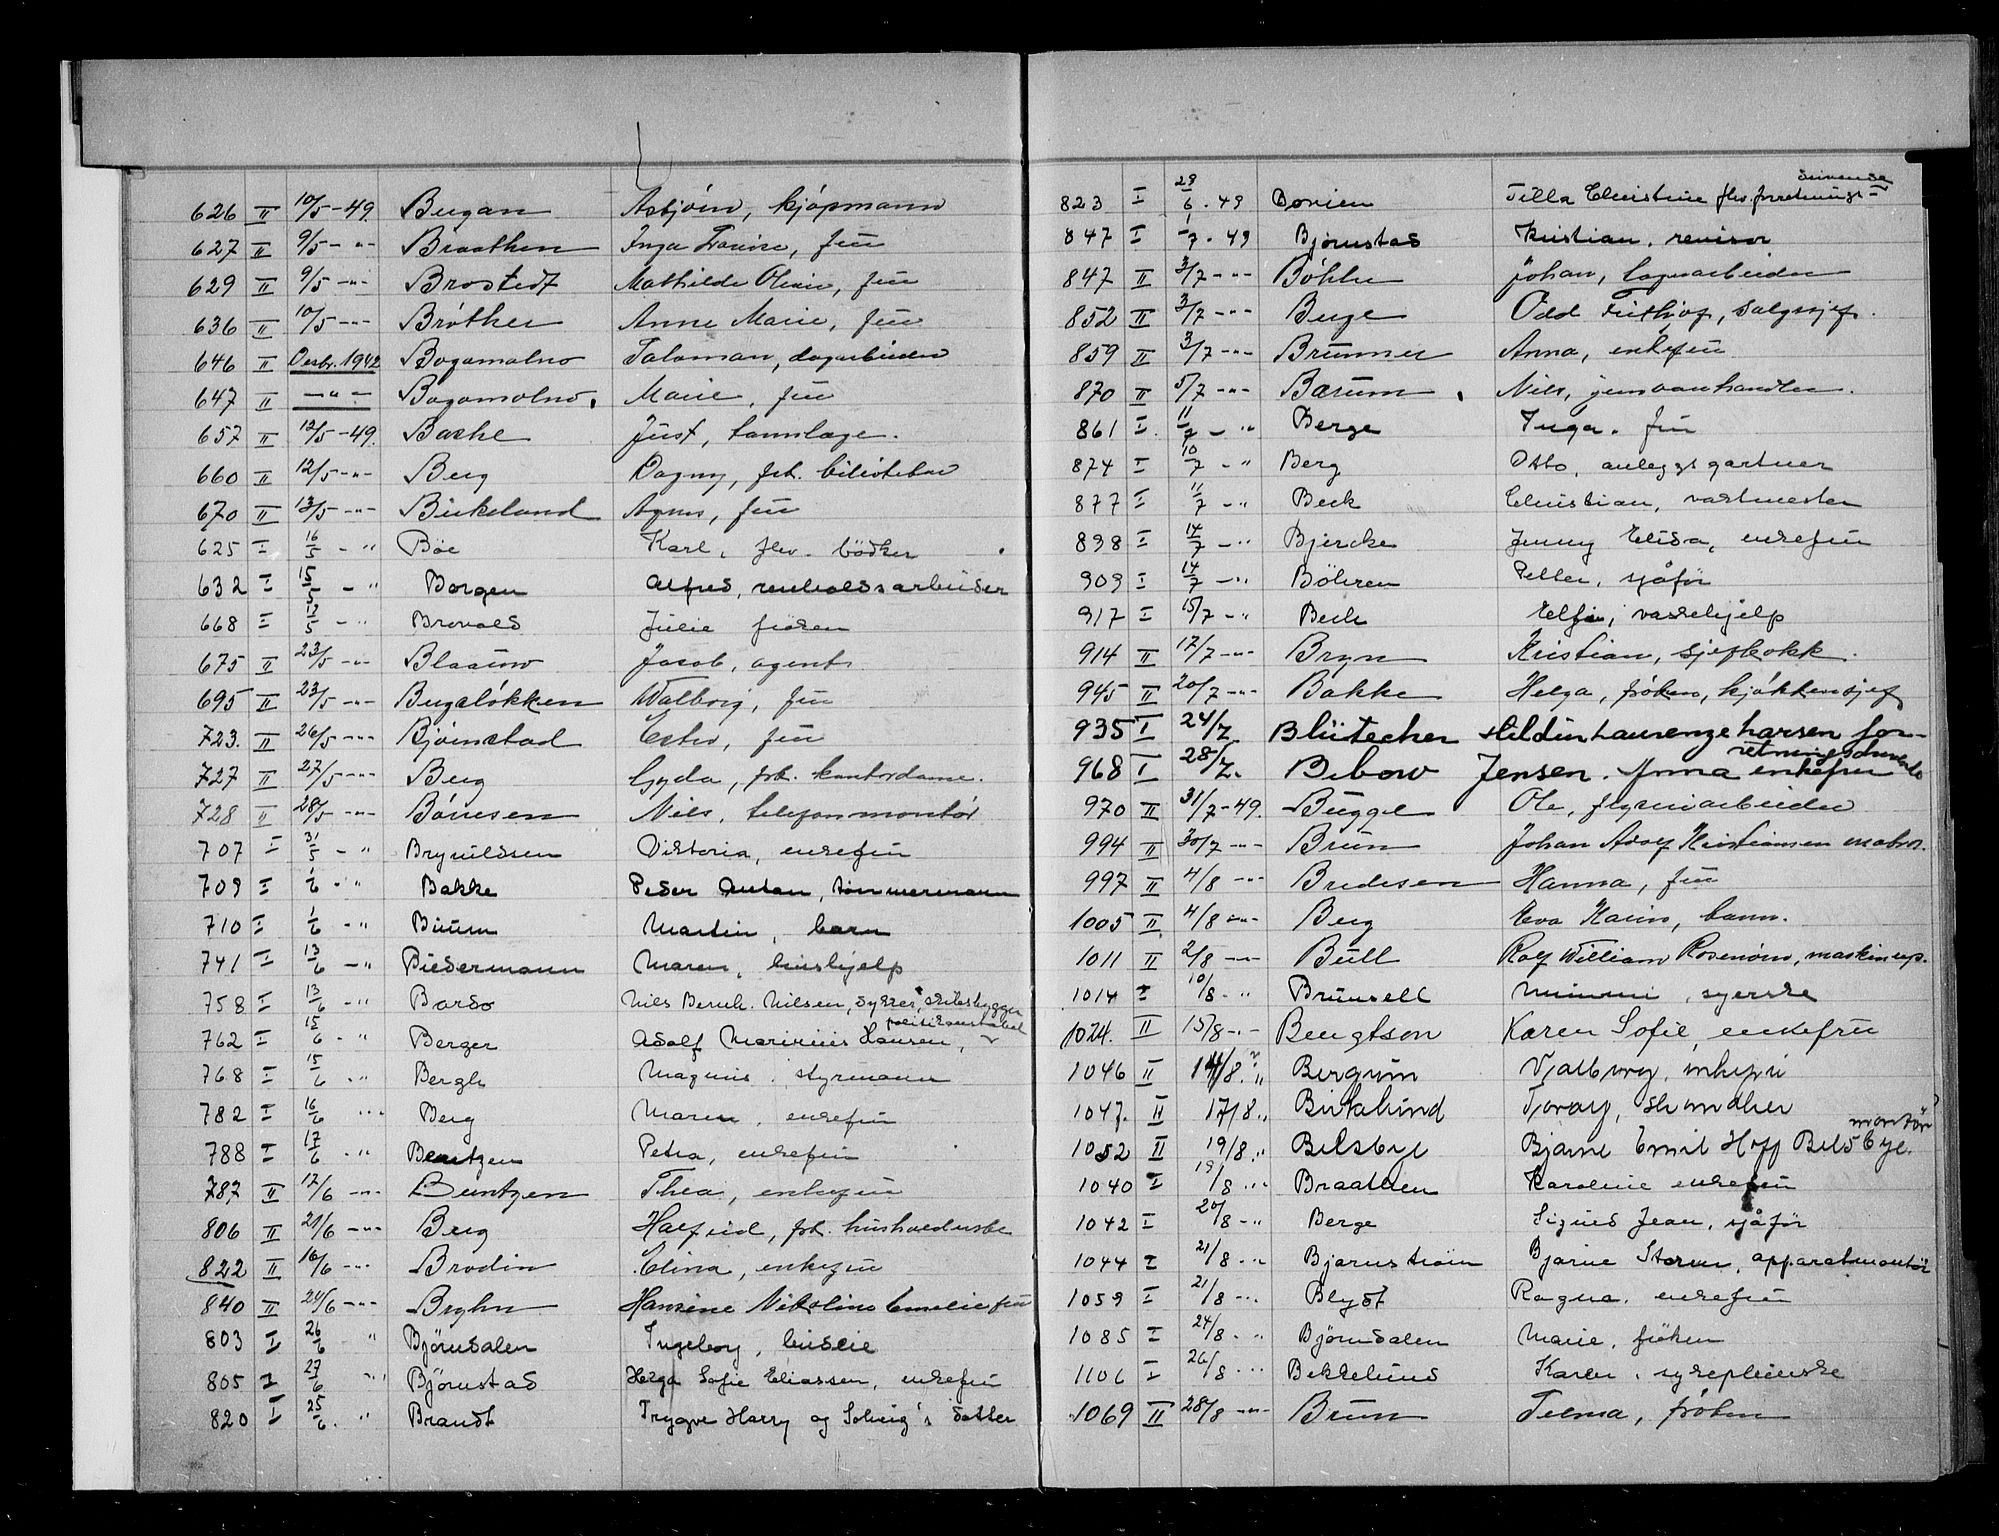 626 II 10/5-49. Bugan Asbjörn, kjöpmann
627 II 9/5 - " - Braathen Inga Lovise, frü
629 II 9/5 - " - Brostedt Mathilde Olivie, frü
636 II 10/5 - " - Bröther Anne Marie, frü
646 II Desbr. 1942 Bogomolno Salomon, lagerarbeider
647 II - " - Bogomolno. Marie, frü
657 II 12/5-49. Baske Just, tannlæge.
660 II 12/5 - " - Berg Dagny, frk. bibliotekar
670 II 13/5 - " - Birkeland Agnes, frü
625 I 16/5 - " Böe Karl, fhv. bödker
632 I 15/5 - " Borgen Alfred, renholdsarbeider
668 I 13/5 - " Brovold Julie fröken
675 II 23/5 - " - Blaauw Jacob, agent
695 II 23/5 - " - Bugelökken Walborg, frü
723. II 26/5 - " - Björnstad Ester, frü
727 II 27/5 - " - Berg Gyda, frk. kontordame.
728 II 28/5 - " - Bönesen Nils, telefonmontör
707 I 31/5 - " Brynildsen Viktoria, enkefrü
709 I 1/6 - " Bakke Peder Anton, tömmermann
710 I 1/6 - " Buum Martin, barn
741 I 13/6 - " Biedermann Maren, hushjelp
758 I 13/6 - " Bardo Nils Bernh. Nilsen, skibsbygger
762 I 15/6 - " Berger Adolf Marinius Hansen, politikonstabel
768 I 15/6 - " Bergh Magnus, styrmann
782 I 16/6 " Berg Maren, enkefrü
788 I 17/6 - " Bentzen Petra, enkefrü
787 II 17/6 - " - Bentzen Thea, enkefrü
806 II 21/6 - " - Berg Halfrid, frk. husholderske
822 II 16/6 - " - Brodin Elina, enkefrü
840 II 24/6 - " - Bryhn Hansine Nikoline Emelie frü
803 I 26/6 " Björnsdalen Ingeborg, huseie
805 I 27/6 " Björnstad Helga Sofie Eliassen, enkefrü
820 I 25/6 . " Brandt Trygve Harry og Solveig's datter
823 I 29/6 . 49 Borien Tilla Christine fhv. forretnings-
drivende
847 I 1/7 . 49 Björnstad Kristian, revisor
847 II 3/7 - " - Böhler Johan, lagerarbeider
852 II 3/7 - " - Berge Odd Frithjof, salgssjef.
859 II 3/7 - " - Brünner Anna, enkefrü
870 II 5/7 - " - Bærum Nils, jernvarehandler.
861 I 11/7 - " Berge Inga. frü
874 I 10/7 - " Berg Otto, anleggsgartner
877 I 11/7 - " Beck Christian, vaktmester
898 I 14/7 - " Bjercke Jenny Elisa, enkefrü
909 I 14/7 - " Böhren Petter, sjåför
917 I 15/7 - " Beck vaskehjelp
914 II 17/7 - " - Bryn Kristian, sjefkokk.
945 II 20/7 - " - Bakke Helga, fröken, kjökkensjef
935 I 24/7 Blütecher Laurenze Larsen for-
retningsdrivende
968 I 28/7. Bebow Jensen. Anna enkefrü
970 II 31/7-49. Bugge Ole, fhv. arbeider
994 II 30/7 - " - Brün Johan Adolf Kristiansen matros.
997 II 4/8 - " - Bredesen Hanna, frü
1005 II 4/8 - " - Berg Eva Karin, barn.
1011 II 2/8 - " - Büll Rolf William Rosenörn, maskinrep.
1014 I 10/8 . " Brünsell Mimmi, syerske
1024. II 15/8 - " - Bengtson Karen Sofie, enkefrü
1046 II 14/8. " Bergum Valborg, enkefrü
1047. II 17/8 . " Birkelund
1052 II 19/8. " Belsbye Bjarne Emil Hoff Belsbye. montör
1040 I 19/8 . " Braathen Karoline enkefrü
1042 I 20/8 - " Berge Sigurd Jean, sjåför
1044 I 21/8 . " Bjørnström Bjarne Storm, apparatmontör
1059 I 21/8 - " Blydt Ragna. enkefrü
1085 I 24/8 . " Björnsdalen Marie, fröken
1106 I 26/8 . " Bekkelund Karen, sykepleierske
1069 II 28/8 - " - Brun Telma, fröken